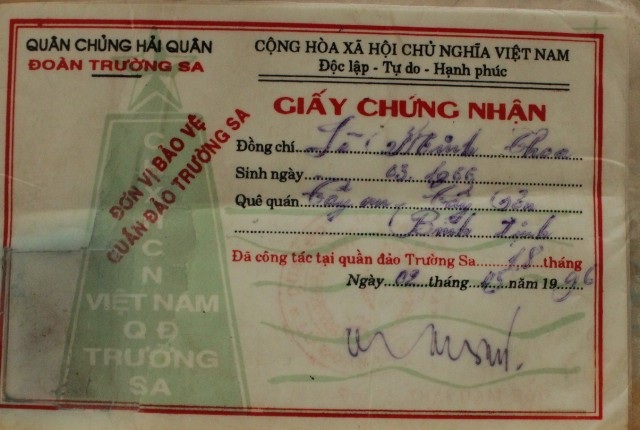 QUÂN CHỦNG HẢI QUÂN
ĐOÀN TRƯỜNG SA
CỘNG HÒA XÃ HỘI CHỦ NGHĨA VIỆT NAM
Độc lập - Tự do - Hạnh phúc
GIẤY CHỨNG NHẬN
ĐƠN VỊ BẢO VỆ
QUẦN ĐẢO TRƯỜNG SA
Đồng chí Lê Minh Thoa
Sinh ngày 03.1966
Quê quán Tây an, Tây Sơn
Bình Định
Đã công tác tại quần đảo Trường Sa 18 tháng
Ngày 02 tháng 05 năm 1996
VIỆT NAM
Q Đ
TRƯỜNG
SA